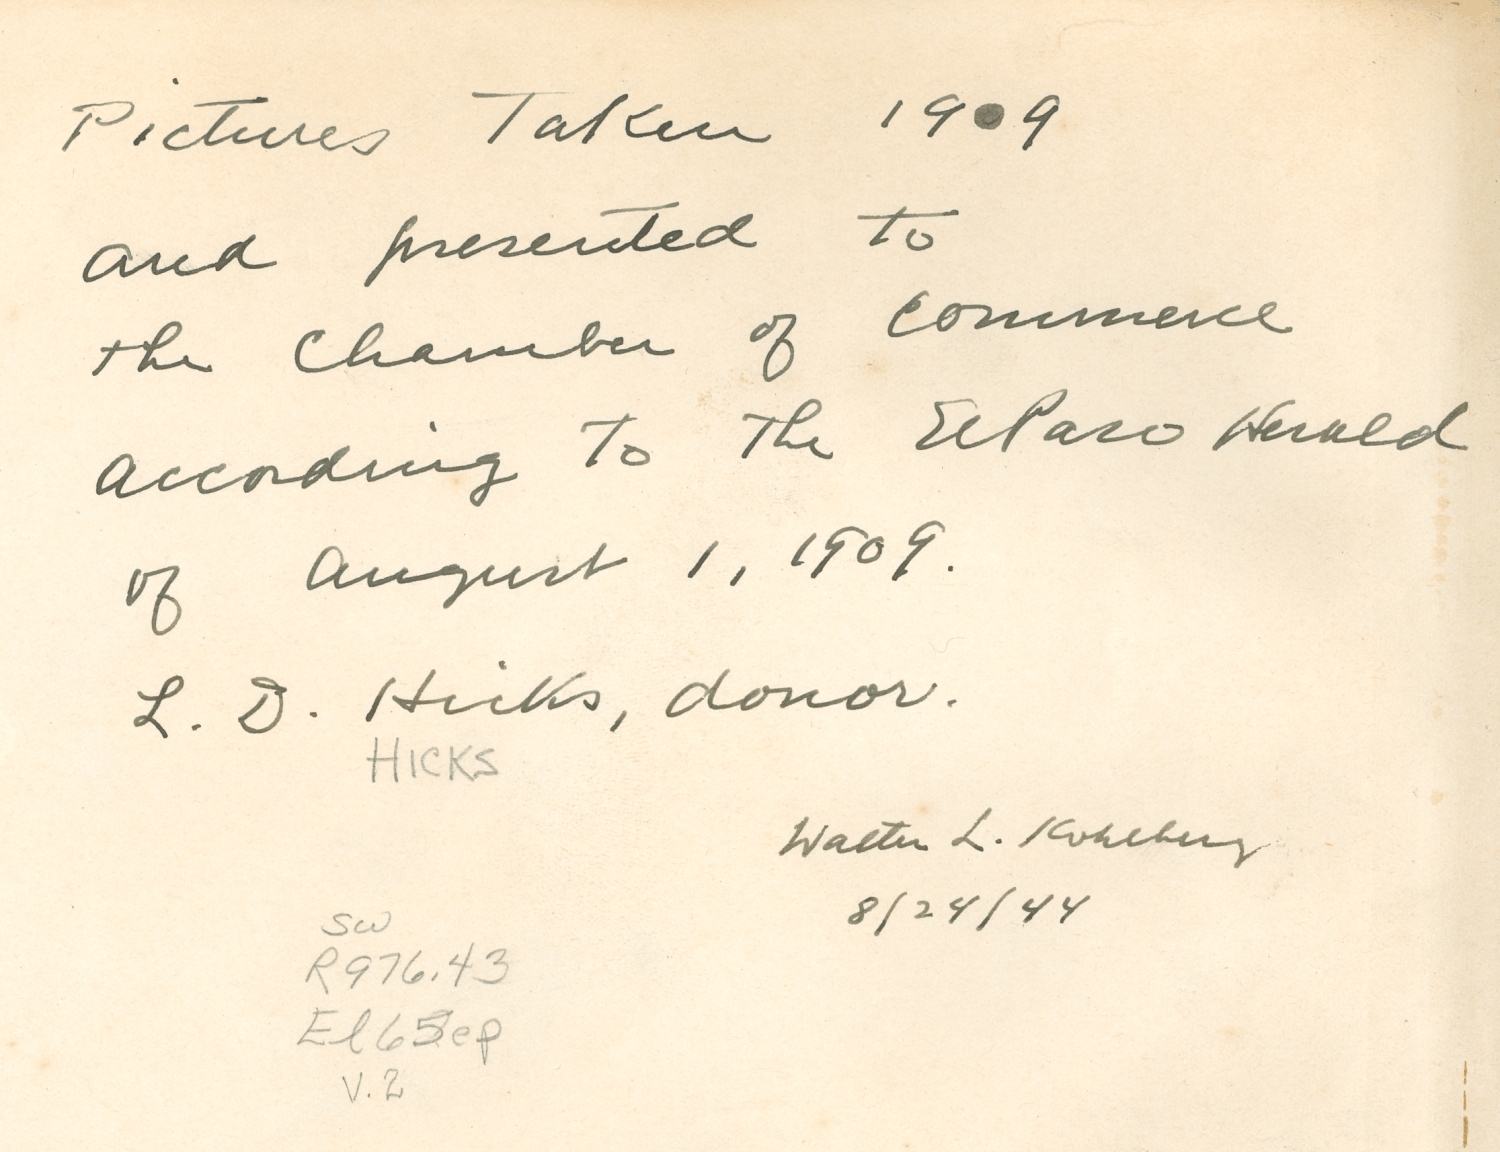 Pictures Taken 1909
and presented to
the Chamber of Commerce
according to the El Paso Herald
of August 1, 1909.
L. D. Hicks, donor.
HICKS
Walter L. Kohlberg
8/24/44
SW
R976.43
El65ep
V.2